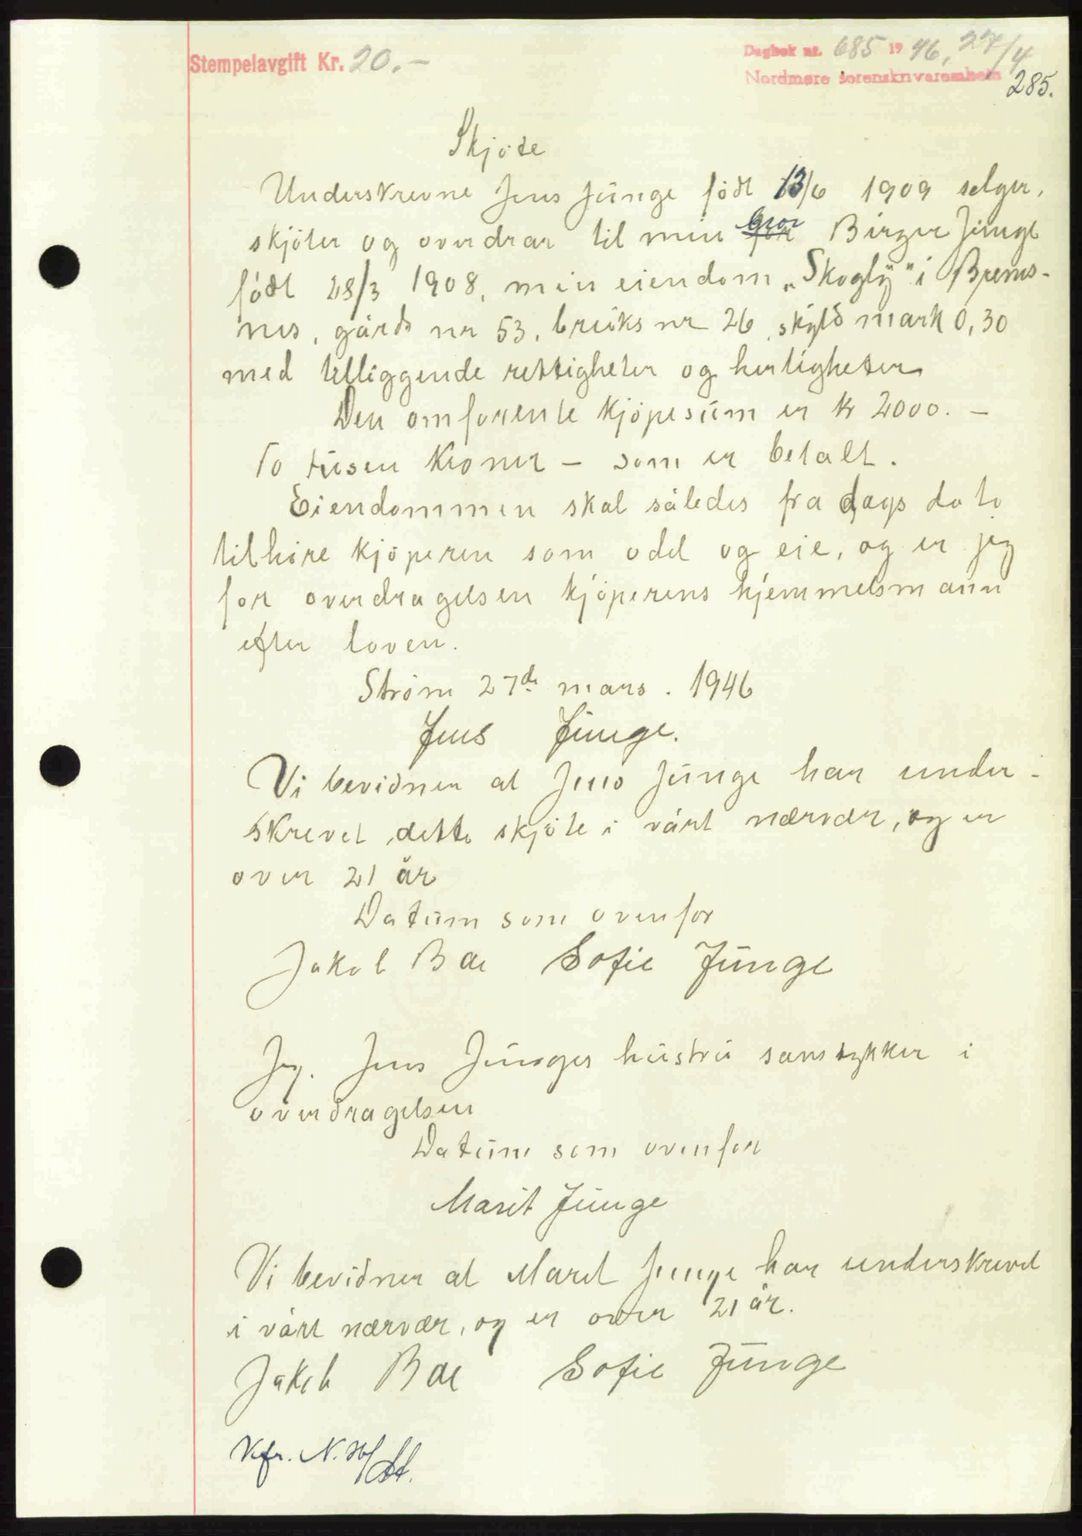 Stempelavgift Kr. 20.-
Dagbok nr. 685 19 46, 27/4
Nordmøre sorenskriverembete
285.
Skjöte
Underskrevne Jens Junge födt 13/6 1909 selger,
skjöter og overdrar til min bror Birger Junge
födt 28/3 1908, min eiendom „Skogly" i Brems-
nes, gårds nr 53, bruks nr 26, skyld mark 0,30
med tilliggende rettigheter og herligheter
Den omforente kjöpesum er kr 2000. -
To tusen kroner - som er betalt.
Eiendommen skal således fra dags dato
tilhöre kjöperen som odel og eie, og er jeg
for overdragelsen kjöperens hjemmelsmann
efter loven.
Ström 27de mars. 1946
Jens Junge.
Vi bevidner at Jens Junge har under-
skrevet dette skjöte i vårt nærvær, og er
over 21 år
Datum som ovenfor
Jakob Bae Sofie Junge
Jeg. Jens Junges hustru samtykker i
overdragelsen
Datum som ovenfor
Marit Junge
Vi bevidner at Marit Junge har underskrevet
i vårt nærvær, og er over 21 år.
Jakob Bae Sofie Junge